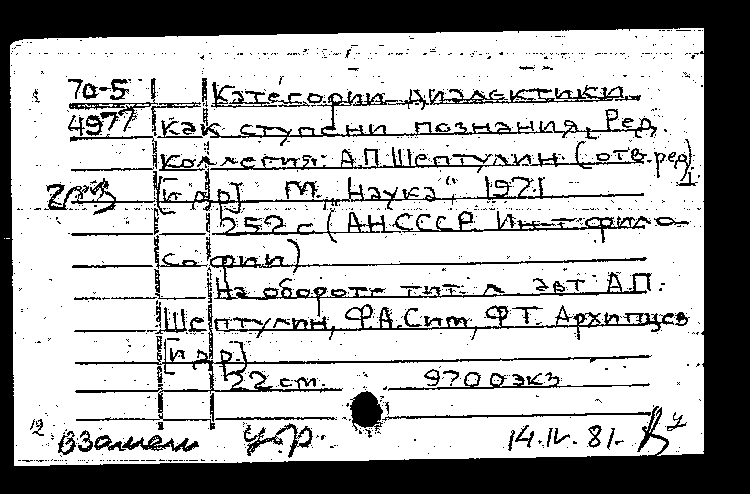 70-5 Категории диалектики
4977 как ступени познания. Ред.
коллегия: А.П.Шептулин (отв.ред)
[и др] М., „Наука", 1971
252 с (АН СССР. Ин-т фило-
софии)
На обороте тит. л авт: А.П.
Шептулин, Ф.А.Сит, Ф.Т. Архипцев
[и др]
22 cm. 9700экз
12 взамен у.р. 14.IV.81.